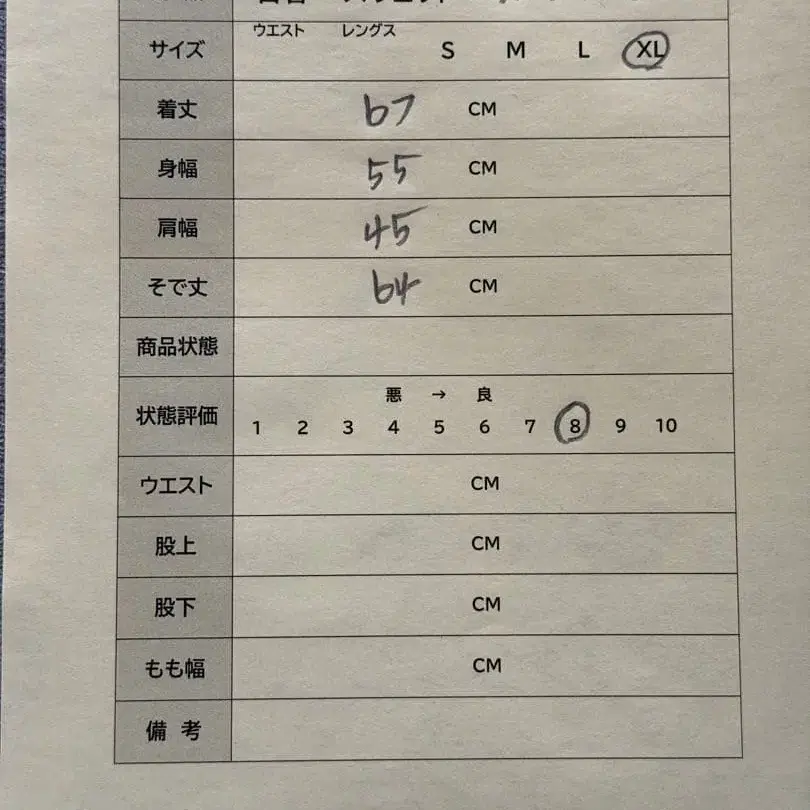 ウエスト レングス
サイズ S M L XL
着丈 67 CM
身幅 55 CM
肩幅 45 CM
そで丈 64 CM
商品状態
悪 → 良
状態評価 1 2 3 4 5 6 7 8 9 10
ウエスト CM
股上 CM
股下 CM
もも幅 CM
備 考